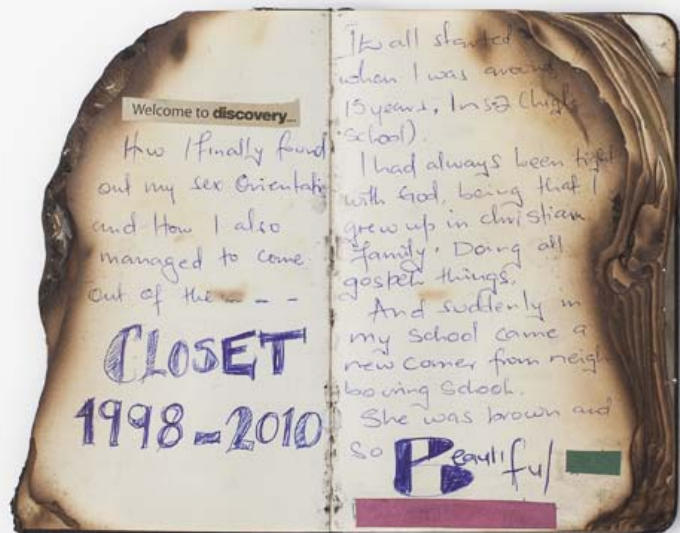 Welcome to discovery...
How I finally found
out my sex Orientatio
and How I also
managed to come
out of the - - -
CLOSET
1998-2010
It all started
when I was around
15 years, In S2 (high
School).
I had always been tight
with God, being that I
grew up in christian
family. Doing all
gospel things.
And suddenly in
my school came a
new comer from neigh
bouring School.
She was brown and
so Beautiful